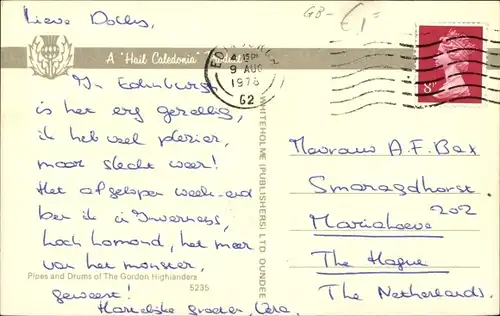 Lieve Dolly,
GB- € 1=
A "Hail Caledonia" Product
EDINBURGH
4 15 PM
9 AUG
1978
G2
8P
In Edinburgh
is het erg gezellig,
ik heb veel plezier,
maar slecht weer!
Het afgelopen week-end
ben ik in Inverness,
Loch Lomond, het meer
van het monster,
geweest!
Hartelijke groeten, Vera.
Pipes and Drums of The Gordon Highlanders
5235
WHITEHOLME (PUBLISHERS) LTD DUNDEE
Mevrouw A.F. Bax
Smaragdhorst
202
Mariahoeve
The Hague
The Netherlands.